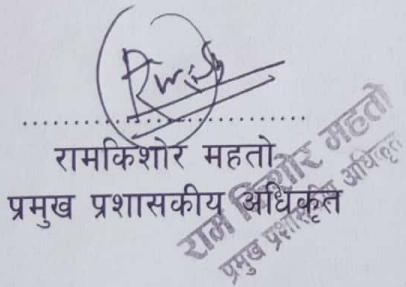 रामकिशोर महतो
प्रमुख प्रशासकीय अधिकृत
राम किशोर महतो
प्रमुख प्रशासकीय अधिकृत